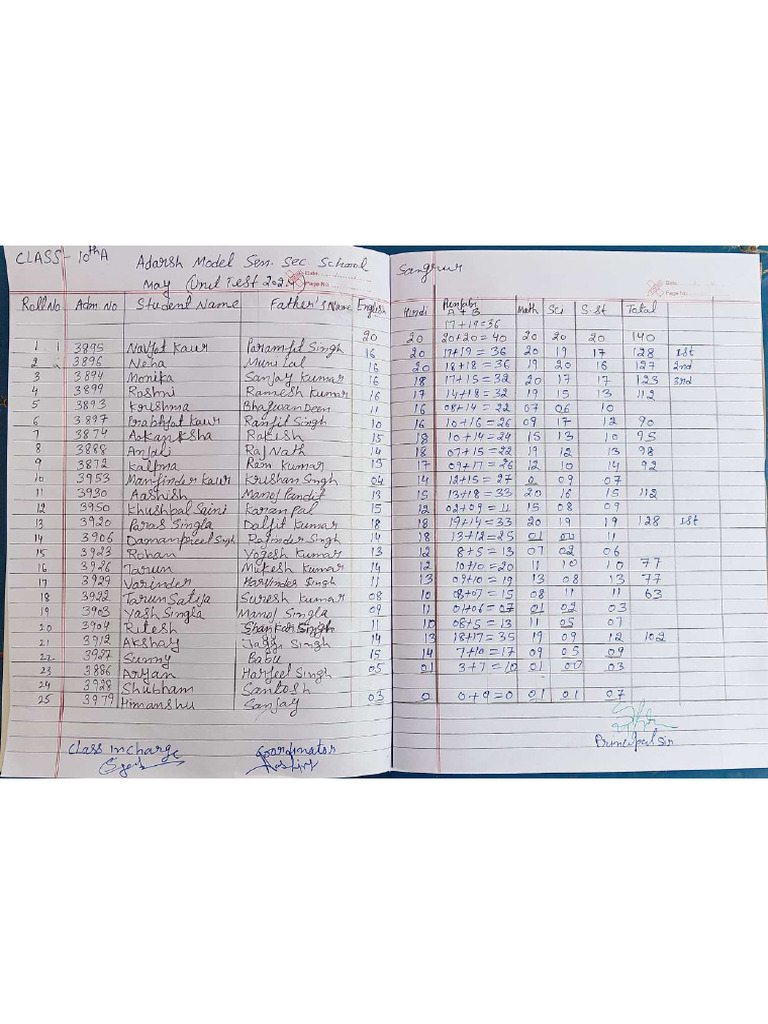 CLASS - 10th A Adarsh Model Sen. Sec. School Sangrur
May (Unit Test
Date
Page No.
Date
Page No.
Roll No Adm. No Student Name Father's Name English Hindi Punjabi A + B Math Sci S.St Total
17+19=36
20 20 20+20 = 40 20 20 20 140
1 3895 Navjot Kaur Paramjit Singh 16 20 17+19 = 36 20 19 17 128 1st
2 3896 Neha Muni Lal 16 20 18+18 = 36 19 20 16 127 2nd
3 3894 Monika Sanjay Kumar 16 18 17+15 = 32 20 17 17 123 3rd
4 3899 Roshni Ramesh Kumar 16 17 14+18 = 32 19 15 13 112
5 3893 Krishma Bhagwan Deen 11 16 08+14 = 22 07 06 10
6 3897 Prabhjot Kaur Ranjit Singh 10 16 10+16 = 26 09 17 12 90
7 3874 Aakanksha Rakesh 15 18 10+14 = 24 15 13 10 95
8 3888 Anjali Raj Nath 14 18 07+15 = 22 19 12 13 98
9 3872 Kalpna Ram Kumar 15 17 09+17 = 26 12 10 14 92
10 3953 Manjinder Kaur Krishan Singh 04 14 12+15 = 27 0 09 07
11 3930 Aashish Manoj Pandit 13 15 13+18 = 33 20 16 15 112
12 3950 Khushpal Saini Karam Pal 15 12 02+09 = 11 15 08 09
13 3920 Paras Singla Daljit Kumar 18 18 19+14 = 33 20 19 19 128 1st
14 3906 Damanpreet Singh Rajinder Singh 14 18 13+12 = 25 01 00 11
15 3923 Rohan Yogesh Kumar 13 12 8+5 = 13 07 02 06
16 3926 Tarun Mukesh Kumar 14 12 10+10 = 20 11 10 10 77
17 3929 Varinder Harvinder Singh 11 13 09+10 = 19 13 08 13 77
18 3922 Tarun Satija Suresh Kumar 08 10 08+07 = 15 08 11 11 63
19 3903 Yash Singla Manoj Singla 09 11 01+06 = 07 01 02 03
20 3904 Ritesh Shankar Singh 11 10 08+5 = 13 11 05 07
21 3912 Akshay Jaggi Singh 14 13 18+17 = 35 19 09 12 102
22 3927 Sunny Babu 15 14 7+10 = 17 09 05 09
23 3886 Aryan Harjeet Singh 05 01 3+7 = 10 01 00 03
24 3928 Shubham Santosh
25 3979 Himanshu Sanjay 03 0 0+9=0 01 01 07
Class Incharge Coordinator Principal Sir